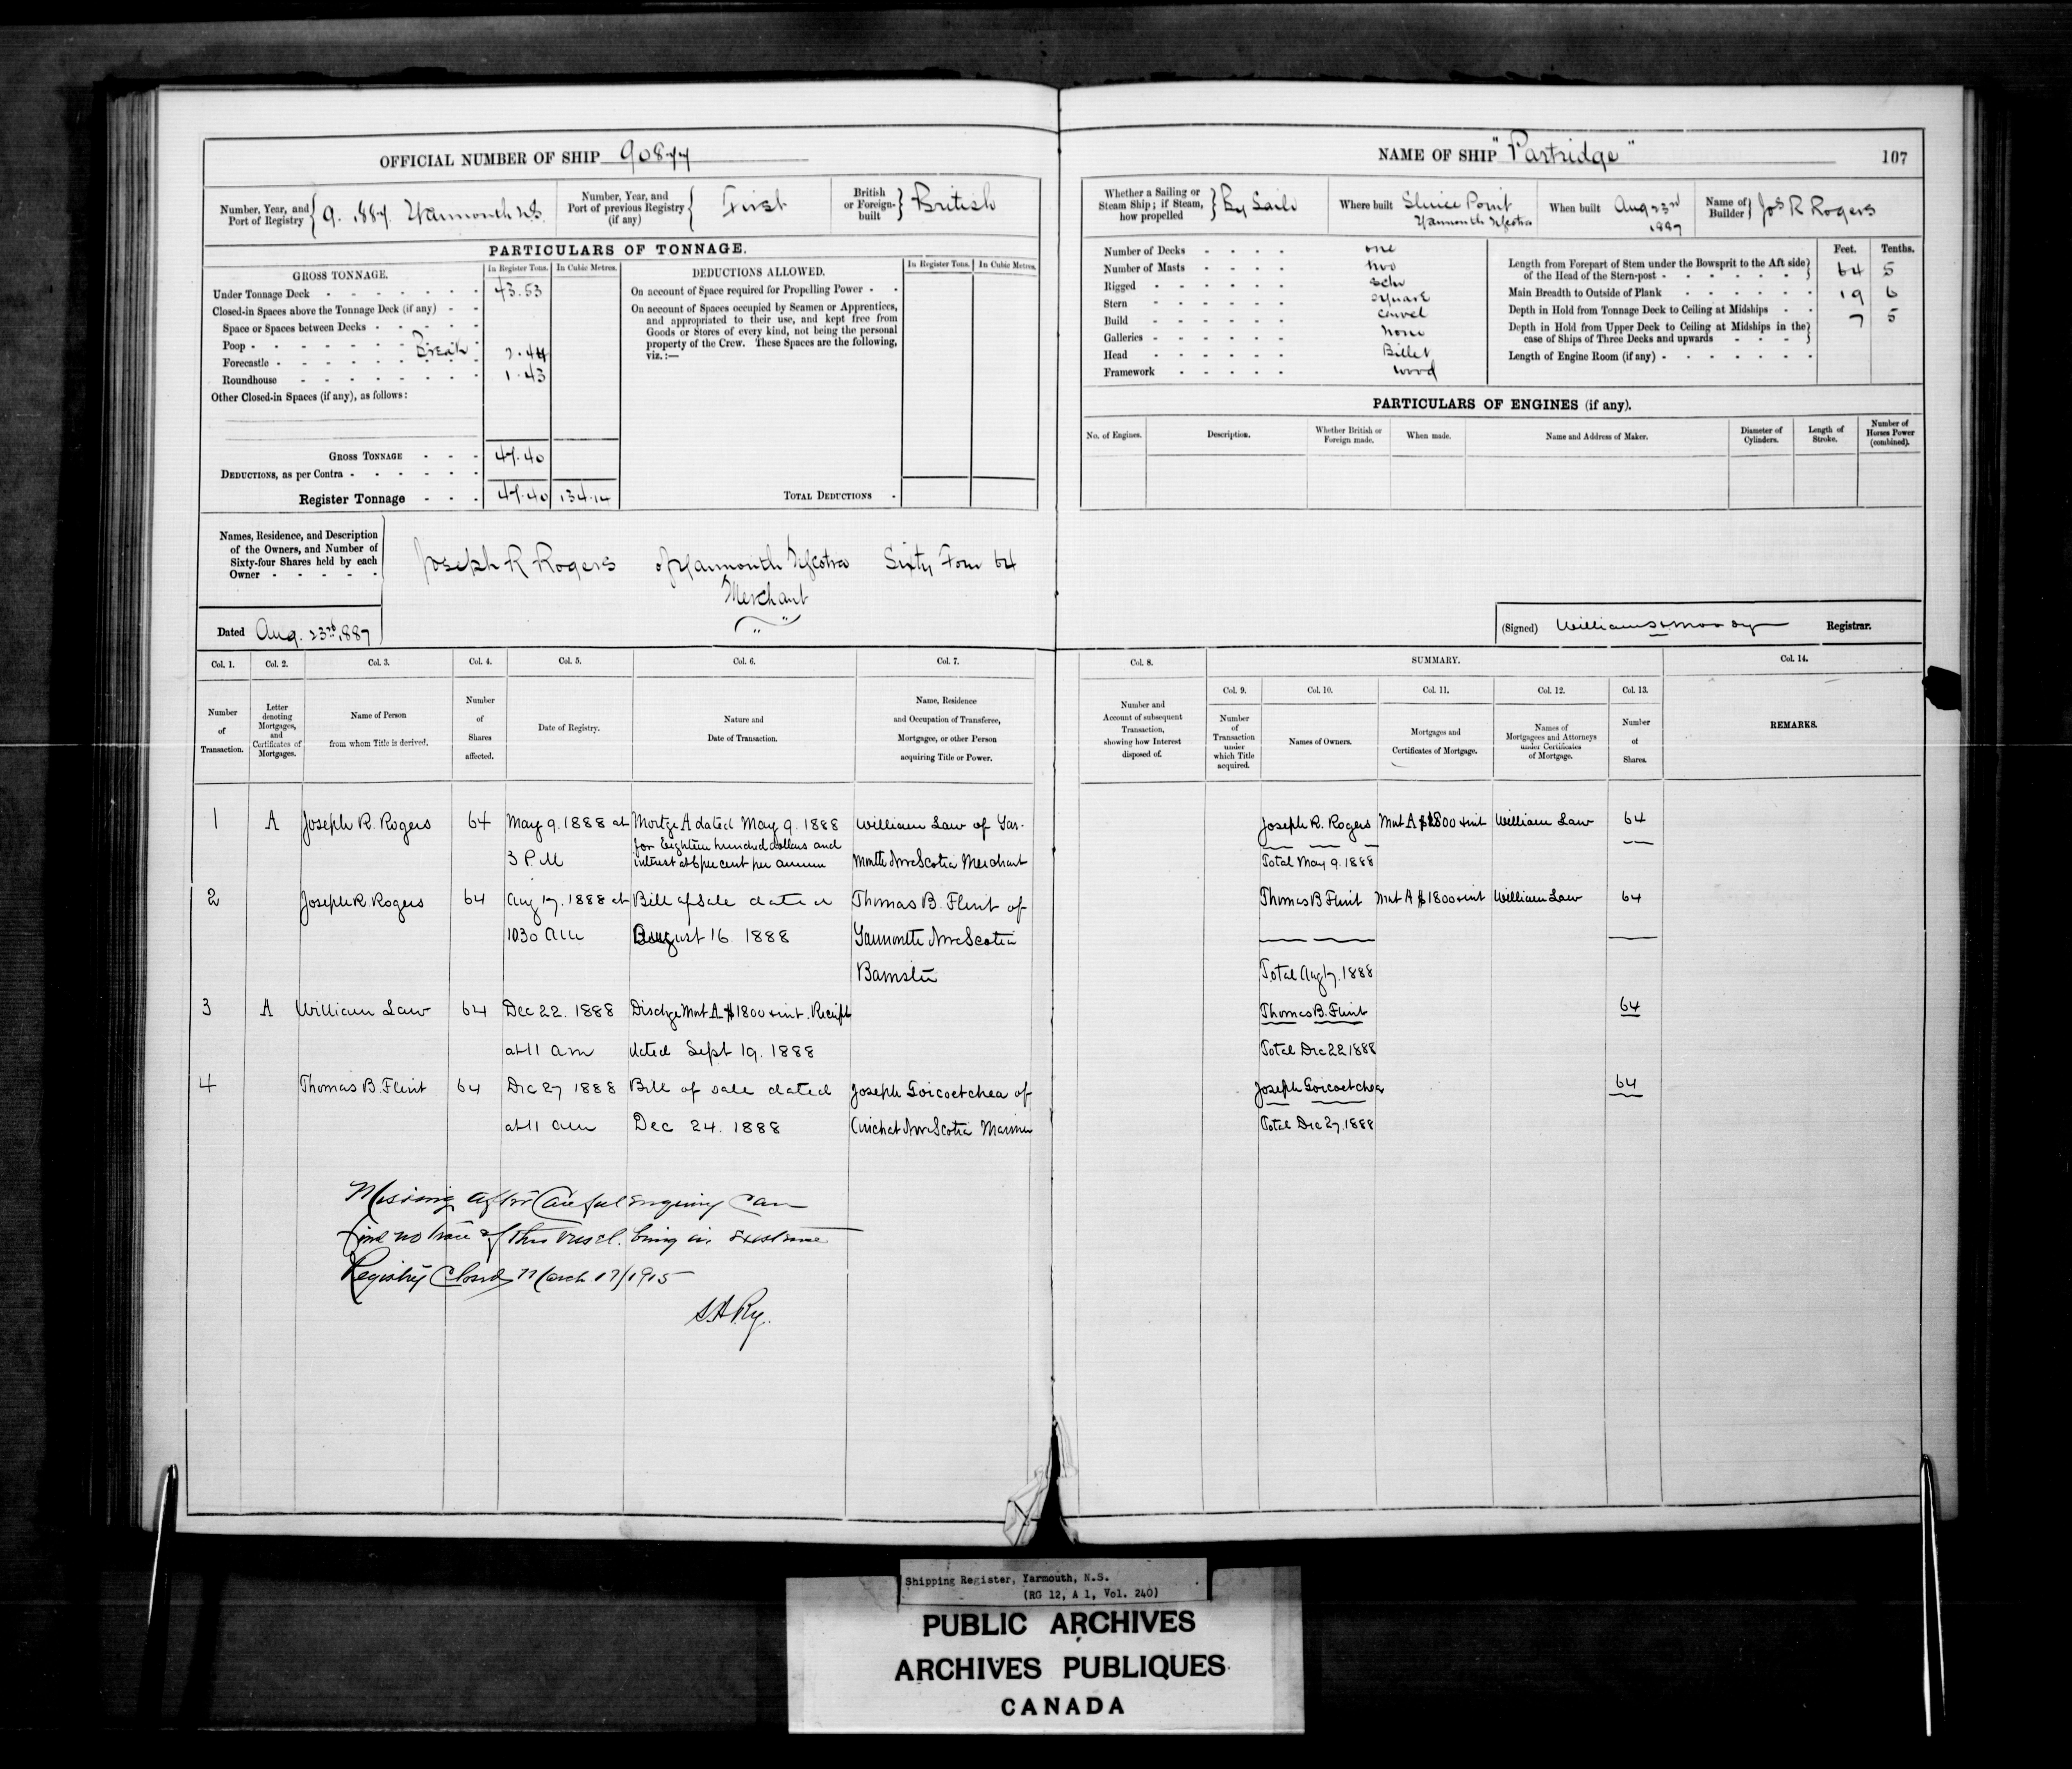 OFFICIAL NUMBER OF SHIP 90877
NAME OF SHIP "Partridge"
107
Number, Year, and Port of Registry { 9. 1887. Yarmouth N.S.
Number, Year, and Port of previous Registry (if any) { First
British or Foreign-built } British
Whether a Sailing or Steam Ship; if Steam, how propelled } By Sails
Where built Sluice Point
Yarmouth NScotia
When built Aug 23rd 1887
Name of Builder } Jos R Rogers
PARTICULARS OF TONNAGE.
GROSS TONNAGE.
In Register Tons.
In Cubic Metres.
Under Tonnage Deck 43.53
Closed-in Spaces above the Tonnage Deck (if any)
Space or Spaces between Decks
Poop
Break
Forecastle 2.44
Roundhouse 1.43
Other Closed-in Spaces (if any), as follows:
GROSS TONNAGE 47.40
DEDUCTIONS, as per Contra
Register Tonnage 47.40 134.14
DEDUCTIONS ALLOWED.
In Register Tons.
In Cubic Metres.
On account of Space required for Propelling Power
On account of Spaces occupied by Seamen or Apprentices,
and appropriated to their use, and kept free from
Goods or Stores of every kind, not being the personal
property of the Crew. These Spaces are the following,
viz.:—
TOTAL DEDUCTIONS
Number of Decks one
Number of Masts two
Rigged Schr
Stern square
Build carvel
Galleries none
Head Billet
Framework wood
Feet. Tenths.
Length from Forepart of Stem under the Bowsprit to the Aft side
of the Head of the Stern-post 64 5
Main Breadth to Outside of Plank 19 6
Depth in Hold from Tonnage Deck to Ceiling at Midships 7 5
Depth in Hold from Upper Deck to Ceiling at Midships in the
case of Ships of Three Decks and upwards
Length of Engine Room (if any)
PARTICULARS OF ENGINES (if any).
No. of Engines.
Description.
Whether British or Foreign made.
When made.
Name and Address of Maker.
Diameter of Cylinders.
Length of Stroke.
Number of Horses Power (combined).
Names, Residence, and Description
of the Owners, and Number of
Sixty-four Shares held by each
Owner
Joseph R Rogers of Yarmouth NScotia Sixty Four 64
Merchant
Dated Aug. 23rd, 1887
(Signed) William Moody Registrar.
Col. 1. Col. 2. Col. 3. Col. 4. Col. 5. Col. 6. Col. 7. Col. 8. SUMMARY. Col. 14.
Col. 9. Col. 10. Col. 11. Col. 12. Col. 13.
Number of Transaction.
Letter denoting Mortgages, and Certificates of Mortgages.
Name of Person from whom Title is derived.
Number of Shares affected.
Date of Registry.
Nature and Date of Transaction.
Name, Residence and Occupation of Transferee, Mortgagee, or other Person acquiring Title or Power.
Number and Account of subsequent Transaction, showing how Interest disposed of.
Number of Transaction under which Title acquired.
Names of Owners.
Mortgages and Certificates of Mortgage.
Names of Mortgagees and Attorneys under Certificates of Mortgage.
Number of Shares.
REMARKS.
1 A Joseph R. Rogers 64 May 9. 1888 at Mortge A dated May 9. 1888 William Law of Yar- Joseph R. Rogers Mort A $1800 & int William Law 64
for Eighteen hundred dollars and
3 P.M interest at 6 per cent per annum mouth Nova Scotia Merchant Total May 9. 1888
2 Joseph R Rogers 64 Aug 17. 1888 at Bill of Sale dated Thomas B. Flint of Thomas B Flint Mort A $1800 & int William Law 64
1030 am August 16. 1888 Yarmouth Nova Scotia
Barrister Total Aug 17. 1888
3 A William Law 64 Dec 22. 1888 Dischge Mort A $1800 & int. Receipt Thomas B. Flint 64
at 11 am dated Sept 19. 1888 Total Dec 22 1888
4 Thomas B. Flint 64 Dec 27 1888 Bill of sale dated Joseph Goicoetchea of Joseph Goicoetchea 64
at 11 am Dec 24. 1888 Arichat Nova Scotia Mariner Total Dec 27. 1888
Missing after Careful enquiry Can
find no trace of this vessel being in existence
Registry Closed March 17/1915
Shipping Register, Yarmouth, N.S.
(RG 12, A 1, Vol. 240)
PUBLIC ARCHIVES
ARCHIVES PUBLIQUES
CANADA